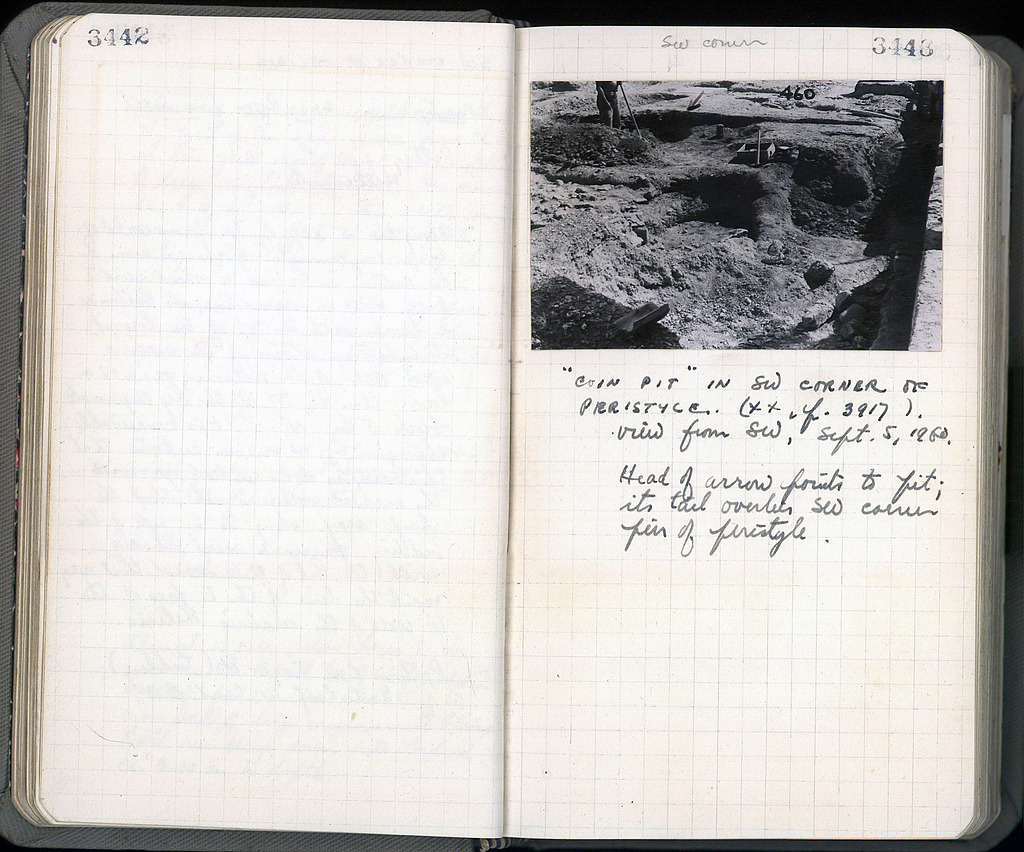 3442
SW corner
3443
460
"COIN PIT" IN SW CORNER OF
PERISTYLE. (XX, p. 3917).
view from SW, Sept. 5, 1960.
Head of arrow points to pit;
its tail overlies SW corner
pier of peristyle.